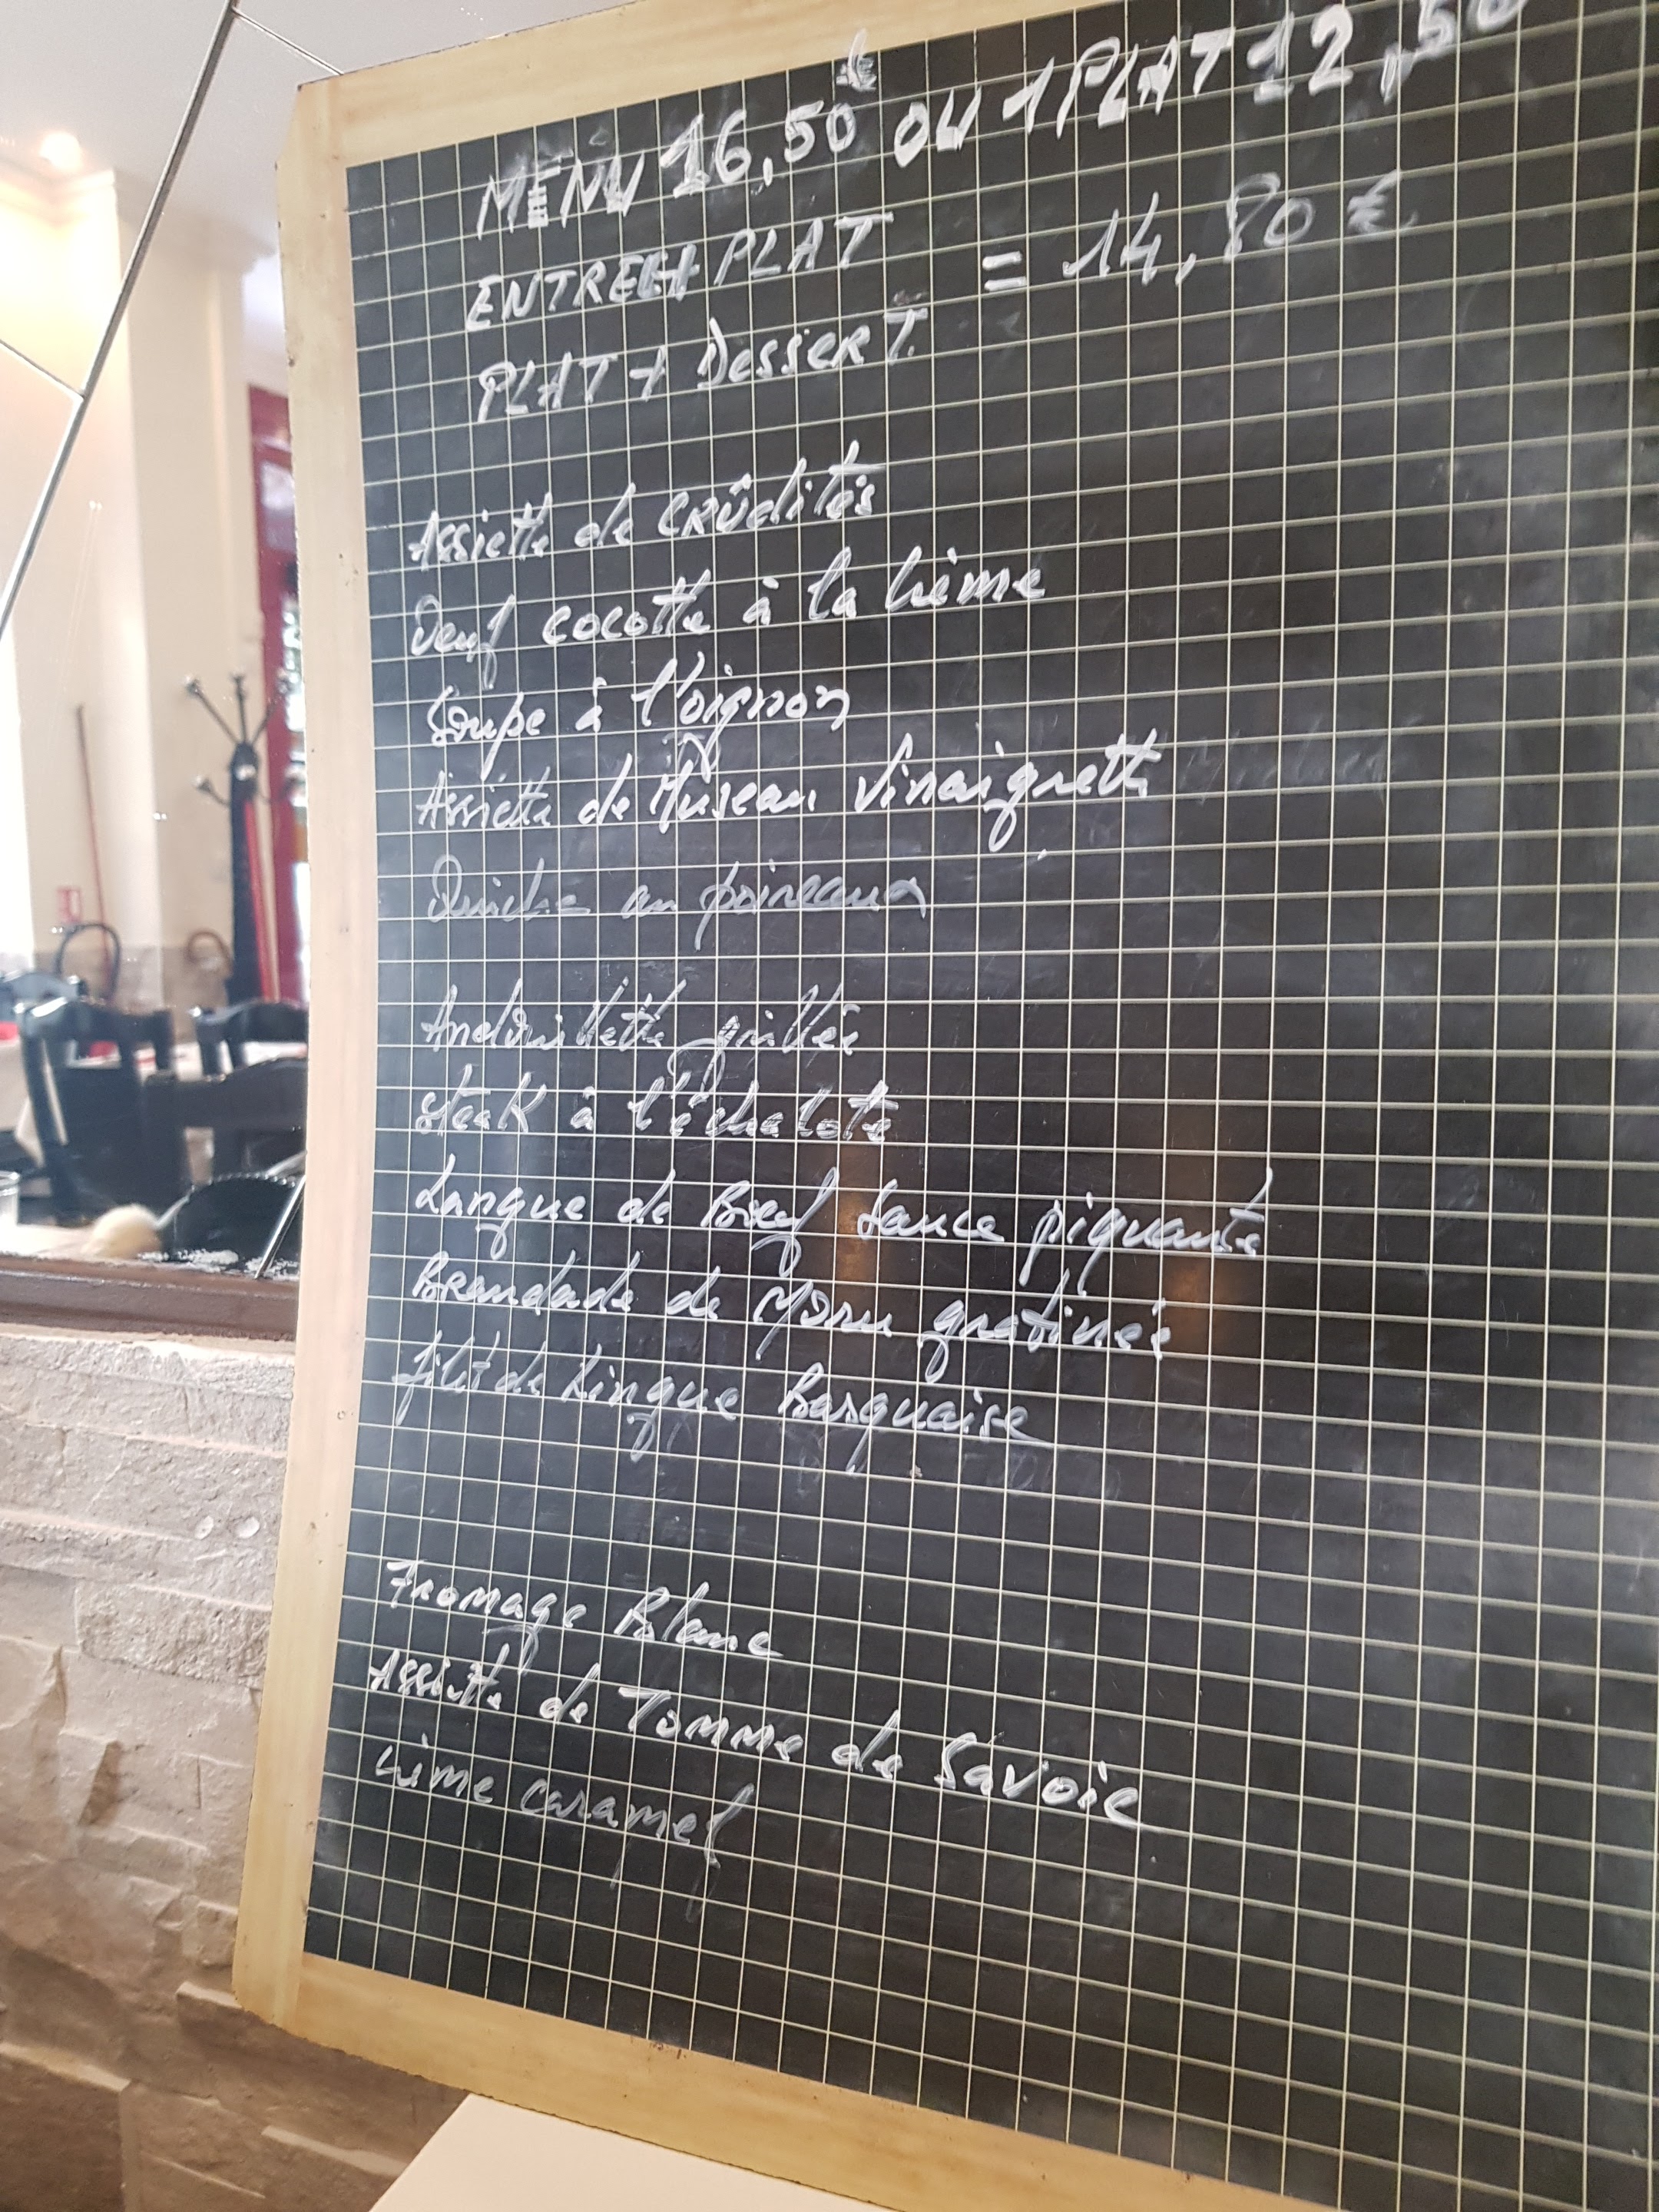 MENU 16,50€ OU 1 PLAT 12,50
ENTREE + PLAT
= 14,80 €
PLAT + DesserT
Assiette de CRûdités
Oeuf cocotte à la crème
Soupe à l'oignon
Assiette de Museau Vinaigrette
Quiche au poireaux
Andouillette grillée
Steak à l'échalote
Langue de Bœuf Sauce piquante
Brandade de Morue gratinée
filet de Lingue Basquaise
Fromage Blanc
Assiette de Tomme de Savoie
crème caramel